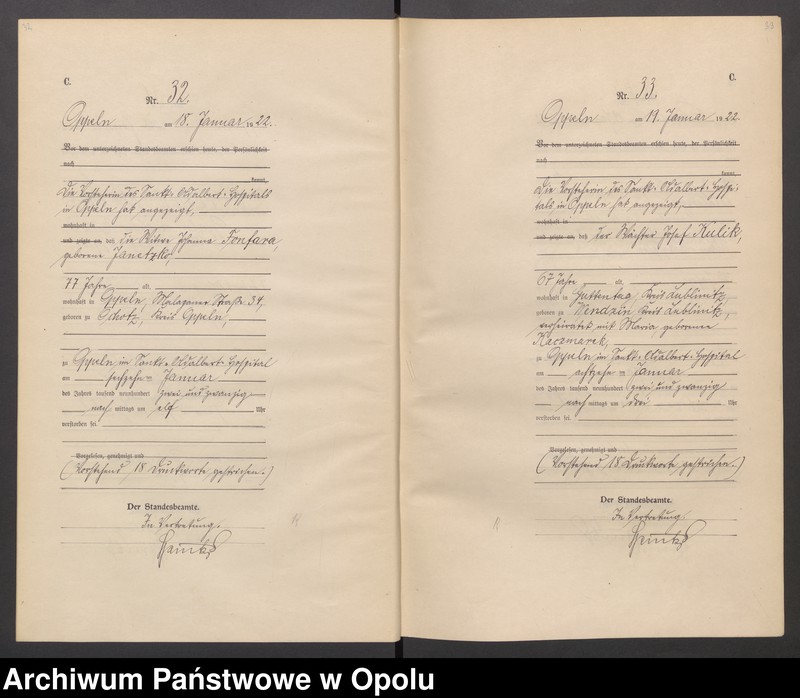 C.
Nr. 32.
Oppeln am 18. Januar 1922.
Vor dem unterzeichneten Standesbeamten erschien heute, der Persönlichkeit
nach
kannt,
Die Vorsteherin des Sankt-Adalbert-Hospitals
in Oppeln hat angezeigt,
wohnhaft in
und zeigte an, daß die Witwe Johanna Fonfara
geborene Janetzko,
77 Jahre alt,
wohnhaft in Oppeln, Malapaner Straße 34,
geboren zu Kreis Oppeln,
zu Oppeln im Sankt-Adalbert-Hospital
am sechzehn Januar
des Jahres tausend neunhundert zwei und zwanzig
nach mittags um elf Uhr
verstorben sei.
Vorgelesen, genehmigt und
(Vorstehend 18 Druckworte gestrichen.)
Der Standesbeamte.
In Vertretung.
33
C.
Nr. 33.
Oppeln am 19. Januar 1922.
Vor dem unterzeichneten Standesbeamten erschien heute, der Persönlichkeit
nach
kannt,
Die Vorsteherin des Sankt-Adalbert-Hospi-
tals in Oppeln hat angezeigt,
wohnhaft in
und zeigte an, daß der Wächter Josef Kulik,
67 Jahre alt,
wohnhaft in Guttentag, Kreis Lublinitz,
geboren zu Wendzin Kreis Lublinitz,
verheiratet mit Maria geborene
Kaczmarek,
zu Oppeln im Sankt-Adalbert-Hospital
am achtzehn Januar
des Jahres tausend neunhundert zwei und zwanzig
nach mittags um drei Uhr
verstorben sei.
Vorgelesen, genehmigt und
(Vorstehend 18 Druckworte gestrichen.)
Der Standesbeamte.
In Vertretung.
Archiwum Państwowe w Opolu